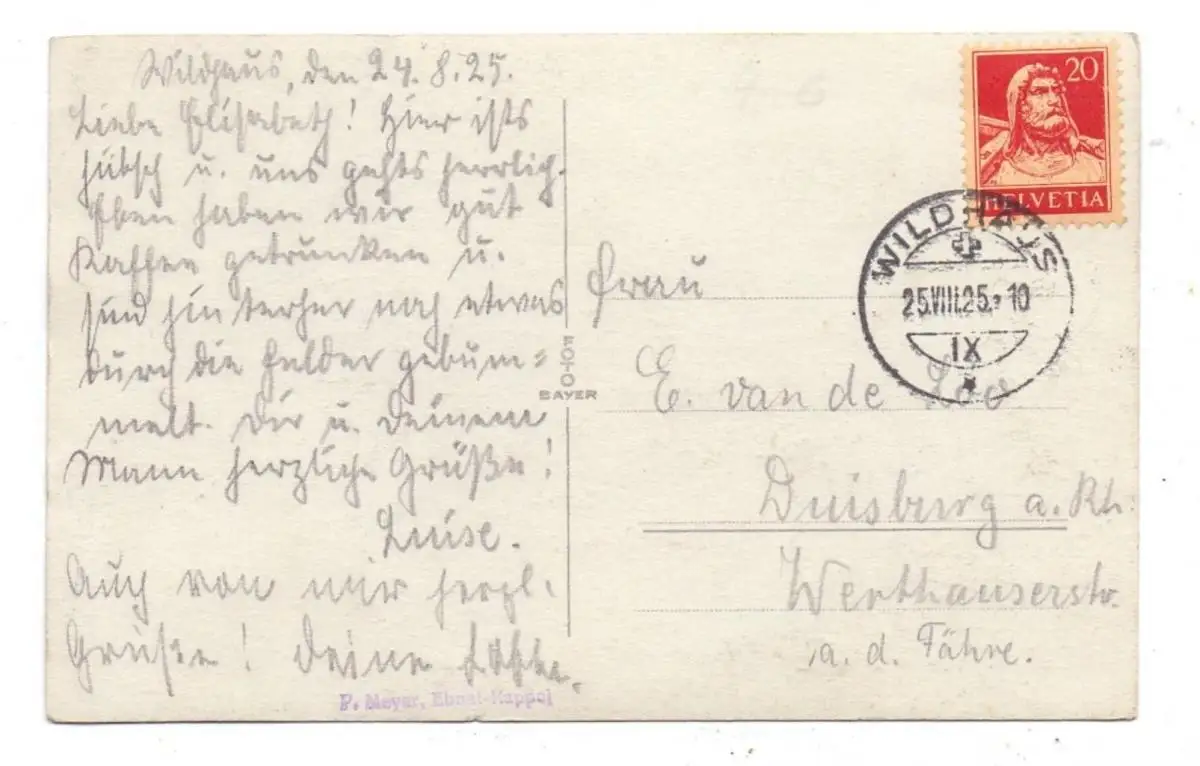 Wildhaus, den 24.8.25.
Liebe Elisabeth! Hier ists
hübsch u. uns gehts herrlich.
Eben haben wir gut
Kaffee getrunken u.
sind hinterher noch etwas
durch die Felder gebum=
melt. Dir u. Deinem
Mann herzliche Grüße!
Luise.
Auch von mir herzl.
Grüße! Deine
P. Meyer, Ebnat-Kappel
FOTO
BAYER
20
HELVETIA
WILDHAUS
25.VIII.25. 10
IX
Frau
E. van de Loo
Duisburg a. Rh.
Werthauserstr.
a. d. Fähre.